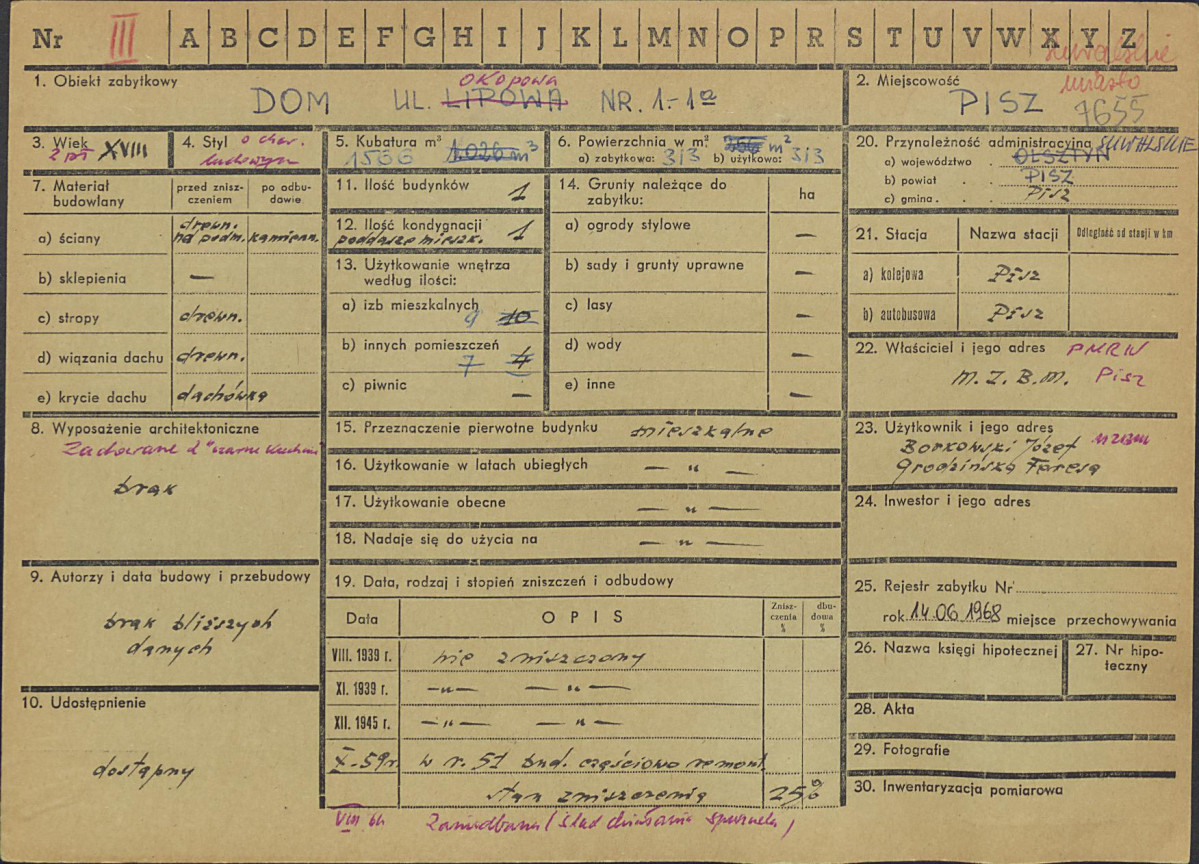 Nr III A B C D E F G H I J K L M N O P R S T U V W X Y Z
suwalskie
miasto
7655
1. Obiekt zabytkowy
OKOPOWA
DOM UL. LIPOWA NR. 1-1a
2. Miejscowość
PISZ
3. Wiek
2 poł XVIII
4. Styl o char.
ludowym
5. Kubatura m³
1566 1.026 m³
6. Powierzchnia w m²
366 m²
a) zabytkowa: 313 b) użytkowa: 313
7. Materiał budowlany
przed zniszczeniem
po odbudowie
a) ściany drewn. na podm. kamienn.
b) sklepienia —
c) stropy drewn.
d) wiązania dachu drewn.
e) krycie dachu dachówka
8. Wyposażenie architektoniczne
Zachowane 2 "czarne kuchnie"
brak
9. Autorzy i data budowy i przebudowy
brak bliższych
danych
10. Udostępnienie
dostępny
11. Ilość budynków 1
12. Ilość kondygnacji 1
poddasze mieszk.
13. Użytkowanie wnętrza
według ilości:
a) izb mieszkalnych 9 10
b) innych pomieszczeń 7 4
c) piwnic —
14. Grunty należące do
zabytku:
ha
a) ogrody stylowe —
b) sady i grunty uprawne —
c) lasy —
d) wody —
e) inne —
15. Przeznaczenie pierwotne budynku mieszkalne
16. Użytkowanie w latach ubiegłych — " —
17. Użytkowanie obecne — " —
18. Nadaje się do użycia na — " —
19. Data, rodzaj i stopień zniszczeń i odbudowy
Data OPIS Zniszczenia % dbudowa %
VIII. 1939 r. nie zniszczony
XI. 1939 r. — " — — " —
XII. 1945 r. — " — — " —
X-59r. w r. 51 bud. częściowo remont.
stan zniszczenia 25%
VIII 64 Zaniedbany (ślad działania spuszczela)
20. Przynależność administracyjna SUWALSKIE
a) województwo OLSZTYN
b) powiat PISZ
c) gmina Pisz
21. Stacja Nazwa stacji Odległość od stacji w km
a) kolejowa Pisz
b) autobusowa Pisz
22. Właściciel i jego adres PMRN
M.Z.B.M. Pisz
23. Użytkownik i jego adres
Borkowski Józef
Grodzińska Teresa
24. Inwestor i jego adres
25. Rejestr zabytku Nr
rok 14.06.1968 miejsce przechowywania
26. Nazwa księgi hipotecznej
27. Nr hipoteczny
28. Akta
29. Fotografie
30. Inwentaryzacja pomiarowa